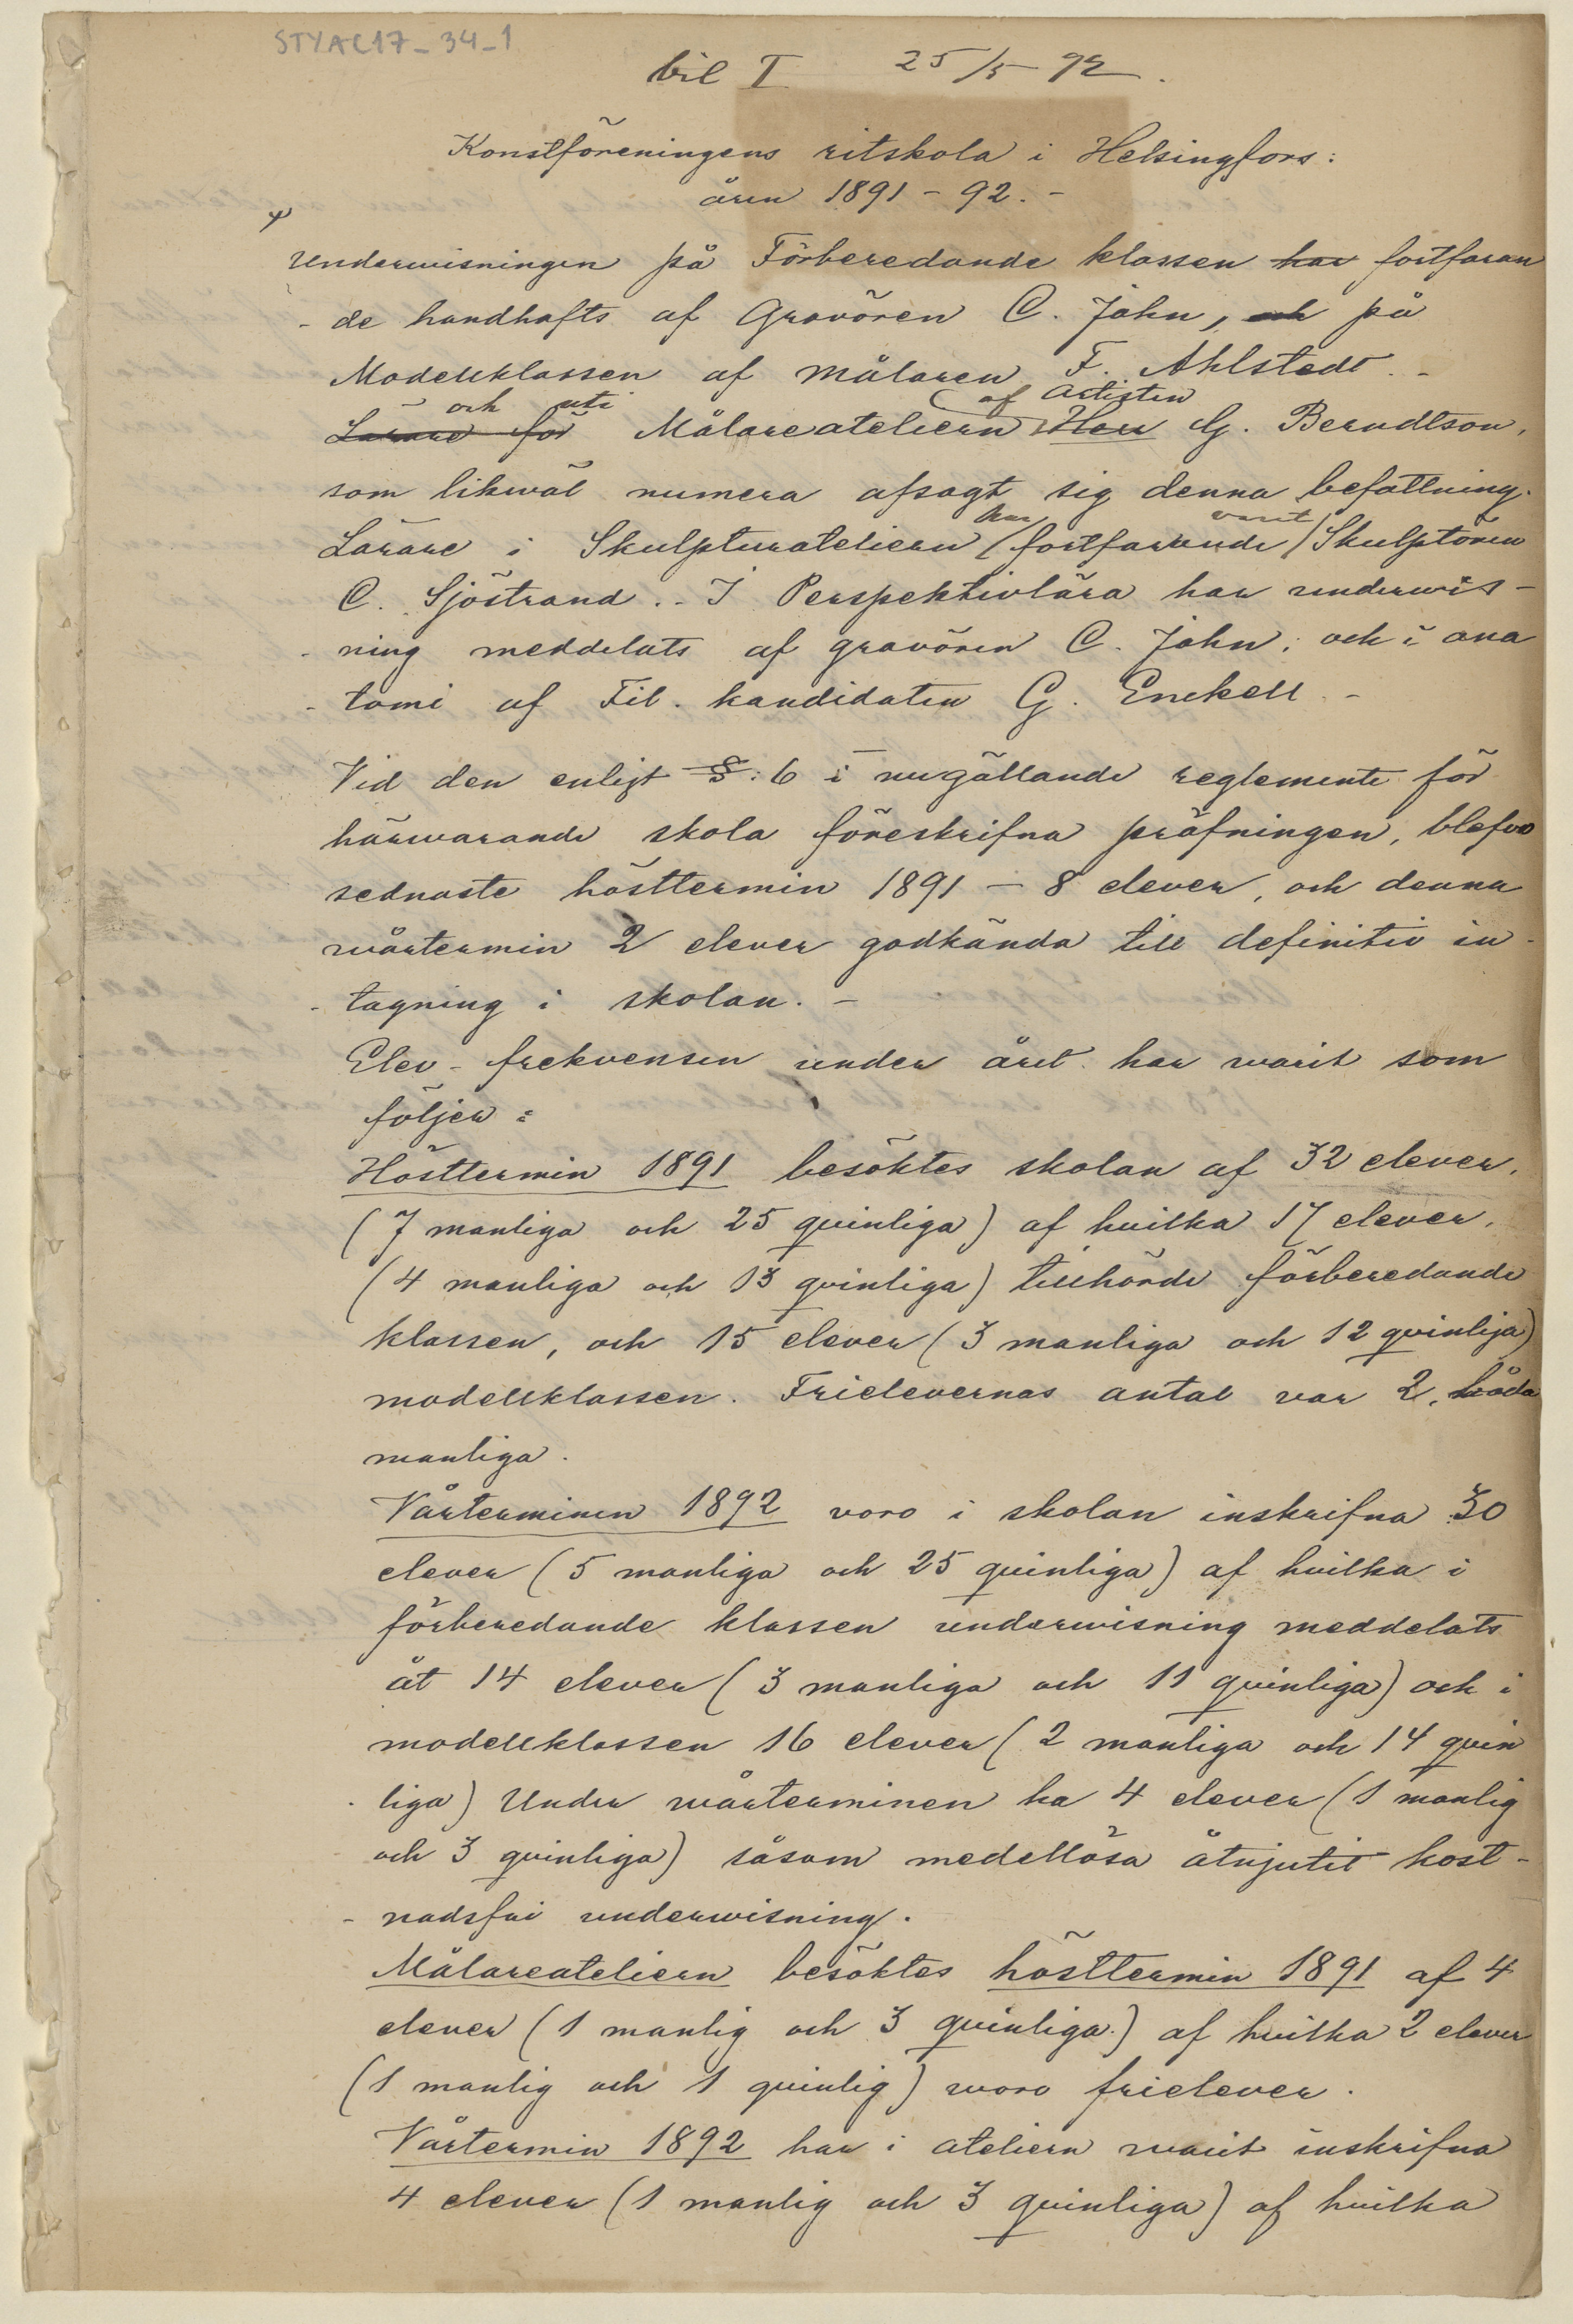 STYAC17_34_1
bil I 25/5 92.
Konstföreningens ritskola i Helsingfors:
åren 1891 - 92. -
Underwisningen på Förberedande klassen har fortfaran
- de handhafts af Gravören C. Jahn, och på
Modellklassen af målaren F. Ahlstedt. -
och uti af Artisten
Lärare för Målareateliern Herr G. Berndtson,
som likwäl numera afsagt sig denna befattning.
har varit
Lärare i Skulpturateliern (fortfarande) Skulptören
C. Sjöstrand. - I Perspektivlära har underwis-
- ning meddelats af gravören C. Jahn; och i ana
- tomi af Fil. kandidaten G. Enckell. -
Vid den enligt §: 6 i nugällande reglemente för
härwarande skola föreskrifna pröfningen, blefvo
sednaste hösttermin 1891 - 8 elever, och denna
wårtermin 2 elever godkända till definitiv in-
- tagning i skolan. -
Elev-frekvensen under året har warit som
följer:
Hösttermin 1891 besöktes skolan af 32 elever,
(7 manliga och 25 qvinliga) af hvilka 17 elever,
(4 manliga och 13 qvinliga) tillhörde förberedande
klassen, och 15 elever (3 manliga och 12 qvinliga)
modellklassen. Frielevernas antal var 2, båda
manliga.
Vårterminen 1892 voro i skolan inskrifna 30
elever (5 manliga och 25 qvinliga) af hvilka i
förberedande klassen underwisning meddelats
åt 14 elever (3 manliga och 11 qvinliga) och i
modellklassen 16 elever (2 manliga och 14 qvin
- liga) Under wårterminen ha 4 elever (1 manlig
och 3 qvinliga) såsom medellösa åtnjutit kost-
- nadsfri underwisning.
Målareateliern besöktes hösttermin 1891 af 4
elever (1 manlig och 3 qvinliga) af hvilka 2 elever
(1 manlig och 1 qvinlig) woro frielever.
Vårtermin 1892 har i ateliern warit inskrifna
4 elever (1 manlig och 3 qvinliga) af hvilka